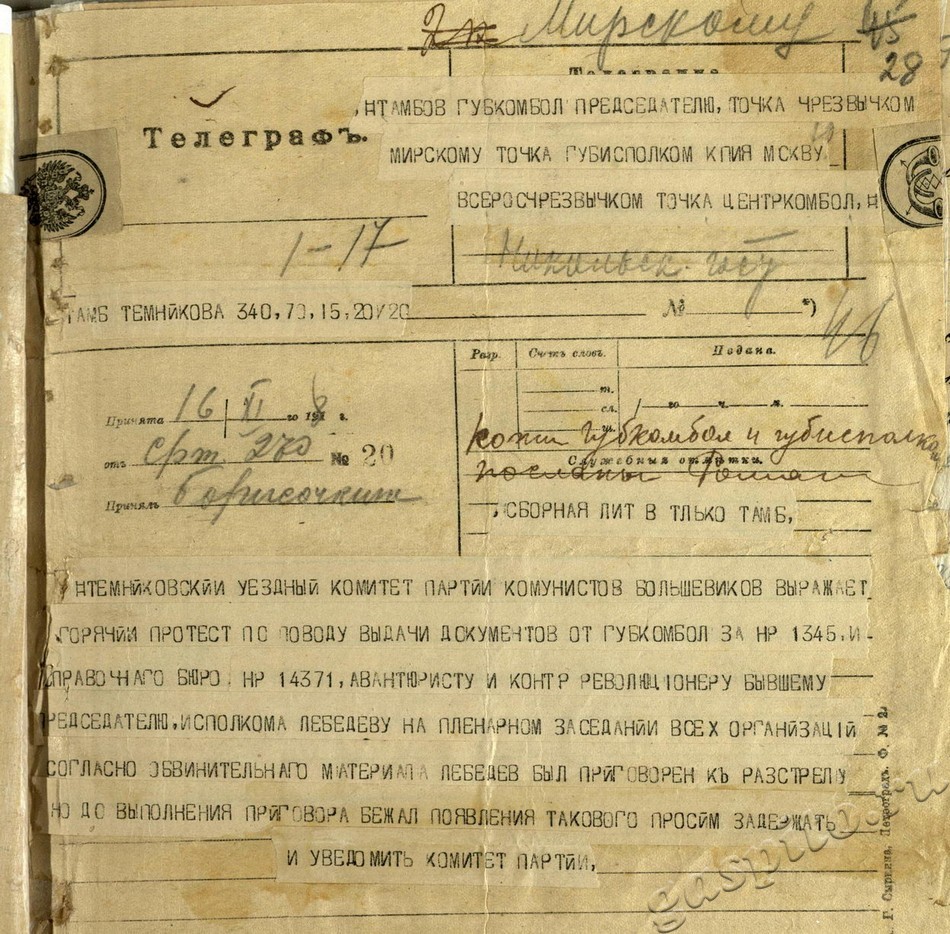 Мирскому
28
Телеграмма
Телеграфъ.
,НТАМБОВ ГУБКОМБОЛ ПРЕДСЕДАТЕЛЮ, ТОЧКА ЧРЕЗВЫЧКОМ
МИРСКОМУ ТОЧКА ГУБИСПОЛКОМ КПИЯ МСКВУ
ВСЕРОСЧРЕЗВЫЧКОМ ТОЧКА ЦЕНТРКОМБОЛ, Н
1-17
ТАМБ ТЕМНЙКОВА 340,70,15,20/20
№ *)
Разр.
Счетъ словъ.
Подана.
т.
сл.
ц.
го ч. м.
Принята 16 XI го 191 8 г.
отъ Срт № 20
Принялъ
копии Губкомбол и губисполком
посланы
Служебныя отмѣтки.
,СБОРНАЯ ЛИТ В ТЛЬКО ТАМБ,
НТЕМНЙКОВСКЙИ УЕЗДНЫЙ КОМИТЕТ ПАРТЙИ КОМУНИСТОВ БОЛЬШЕВИКОВ ВЫРАЖАЕТ
ГОРЯЧЙИ ПРОТЕСТ ПС ПОВОДУ ВЫДАЧИ ДОКУМЕНТОВ ОТ ГУБКОМБОЛ ЗА НР 1345, И
СПРАВОЧНАГО БЮРО НР 14371, АВАНТЮРИСТУ И КОНТР РЕВОЛЮЦІОНЕРУ БЫВШЕМУ
РЕДСЕДАТЕЛЮ, ИСПОЛКОМА ЛЕБЕДЕВУ НА ПЛЕНАРНОМ ЗАСЕДАНЙИ ВСЕХ ОРГАНЙЗАЦІЙ
СОГЛАСНО ОБВИНИТЕЛЬНАГО МАТЕРИАЛА ЛЕБЕДЕВ БЫЛ ПРЙГОВОРЕН КЪ РАЗСТРЕЛУ
НО ДО ВЫПОЛНЕНИЯ ПРЙГОВОРА БЕЖАЛ ПОЯВЛЕНИЯ ТАКОВОГО ПРОСЙМ ЗАДЕРЖАТЬ
И УВЕДОМИТЬ КОМИТЕТ ПАРТЙИ,
Г. Сыркина, Петроградъ. Ф. № 2.